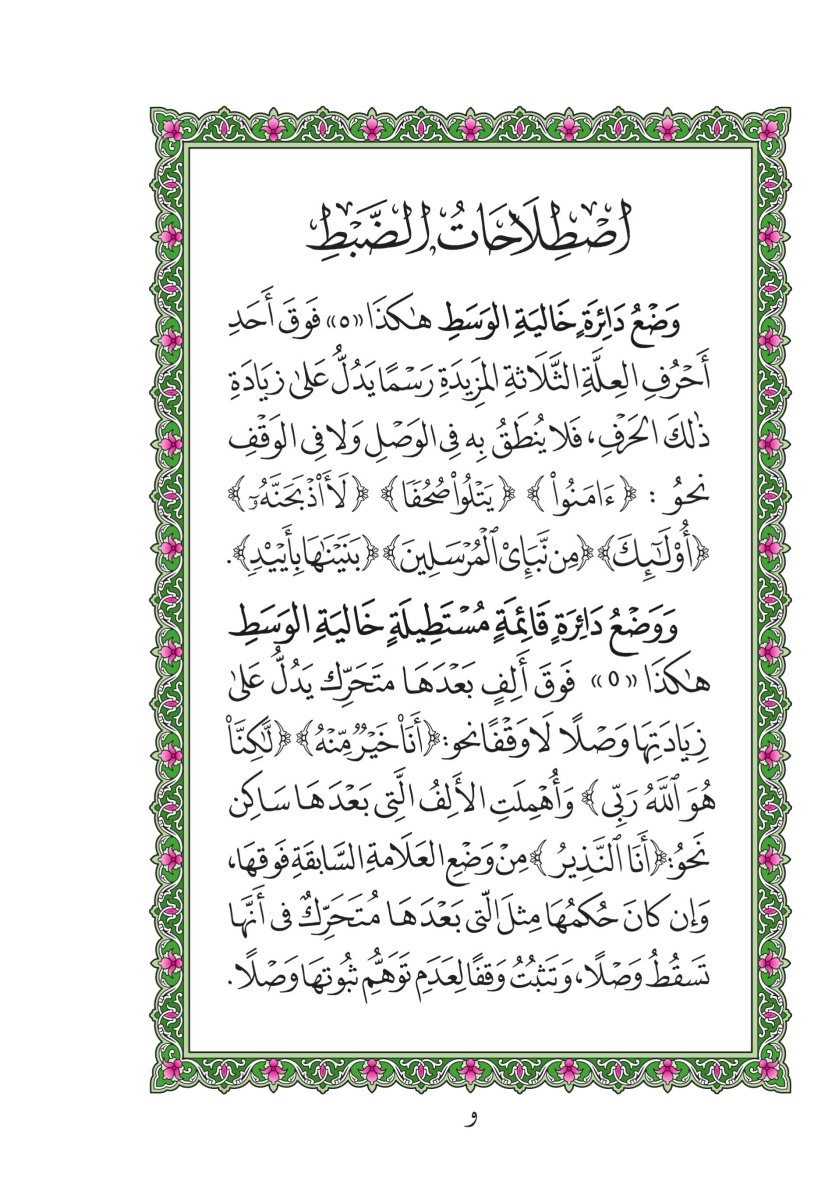 اصْطِلَاحَاتُ الضَّبْطِ
وَضْعُ دَائِرَةٍ خَالِيَةِ الوَسَطِ هٰكَذَا «ه» فَوْقَ أَحَدِ
أَحْرُفِ العِلَّةِ الثَّلَاثَةِ المَزِيدَةِ رَسْمًا يَدُلُّ عَلَىٰ زِيَادَةِ
ذٰلكَ الحَرْفِ، فَلَا يُنطَقُ بِهِ فِي الوَصْلِ وَلَا فِي الوَقْفِ
نحوُ : ﴿ءَامَنُواْ﴾ ﴿يَتْلُواْ صُحُفًا﴾ ﴿لَأَاْذْبَحَنَّهُۥٓ﴾
﴿أُوْلَٰٓئِكَ﴾ ﴿مِن نَّبَإِيْ ٱلْمُرْسَلِينَ﴾ ﴿بَنَيْنَٰهَا بِأَيْيْدٖ﴾.
وَوَضْعُ دَائِرَةٍ قَائِمَةٍ مُسْتَطِيلَةٍ خَالِيَةِ الوَسَطِ
هٰكَذَا «٥» فَوْقَ أَلِفٍ بَعْدَهَا متَحَرِّك يَدُلُّ عَلَىٰ
زِيَادَتِهَا وَصْلًا لَا وَقْفًا نحو: ﴿أَنَا۠ خَيْرٞ مِّنْهُ﴾ ﴿لَّٰكِنَّا۠
هُوَ ٱللَّهُ رَبِّي﴾ وَأُهْمِلَتِ الأَلِفُ الَّتِي بَعْدَهَا سَاكِن
نَحوُ: ﴿أَنَا ٱلنَّذِيرُ﴾ مِنْ وَضْعِ العَلَامَةِ السَّابقَةِ فَوْقهَا،
وَإِن كانَ حُكمُهَا مِثلَ الَّتِي بَعْدَهَا مُتَحَرِّكٌ فى أَنَّها
تَسقُطُ وَصْلًا، وَتَثبُتُ وَقفًا لِعَدَمِ تَوَهُّمِ ثُبُوتِهَا وَصْلًا.
و